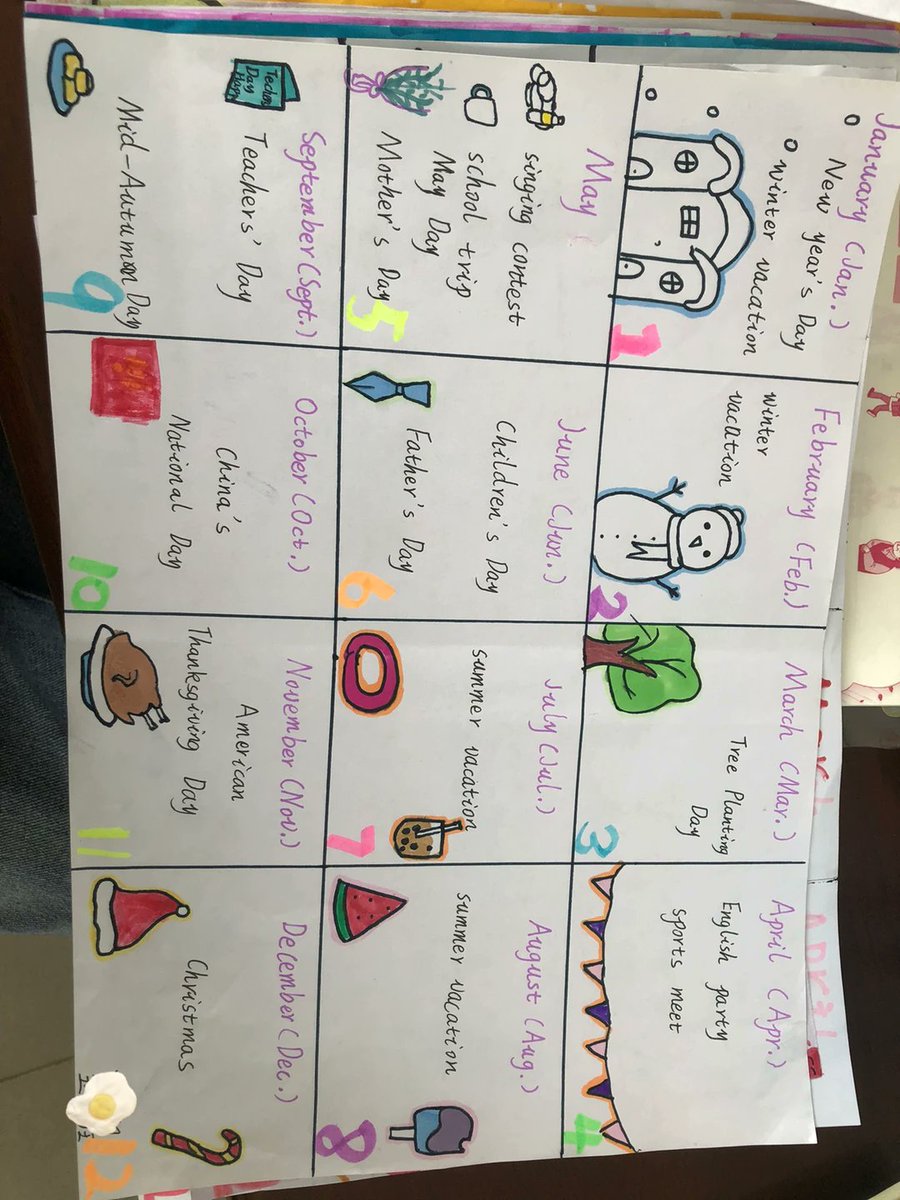 January (Jan.)
New year's Day
winter vacation
1
February (Feb.)
winter
vacation
2
March (Mar.)
Tree Planting
Day
3
April (Apr.)
English party
sports meet
4
May
singing contest
school trip
May Day
Mother's Day
5
June (Jun.)
Children's Day
Father's Day
6
July (Jul.)
summer vacation
7
August (Aug.)
summer vacation
8
September (Sept.)
Day
Teachers' Day
Mid-Autumn Day
9
October (Oct.)
China's
National Day
10
November (Nov.)
American
Thanksgiving Day
11
December (Dec.)
Christmas
12